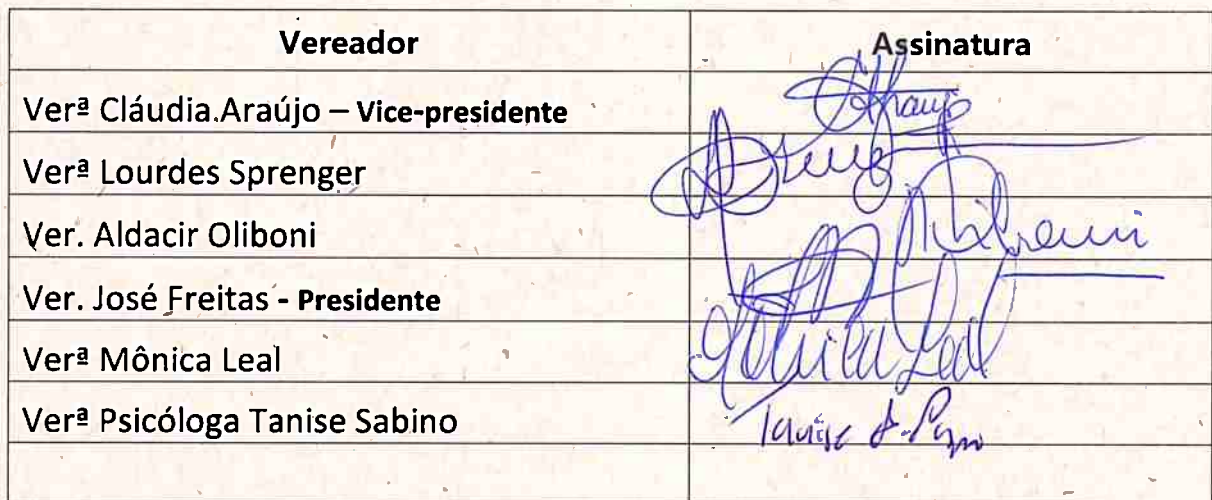 Vereador Assinatura
Verª Cláudia Araújo – Vice-presidente CAraujo
Verª Lourdes Sprenger
Ver. Aldacir Oliboni
Ver. José Freitas - Presidente
Verª Mônica Leal Mônica Leal
Verª Psicóloga Tanise Sabino Tanise